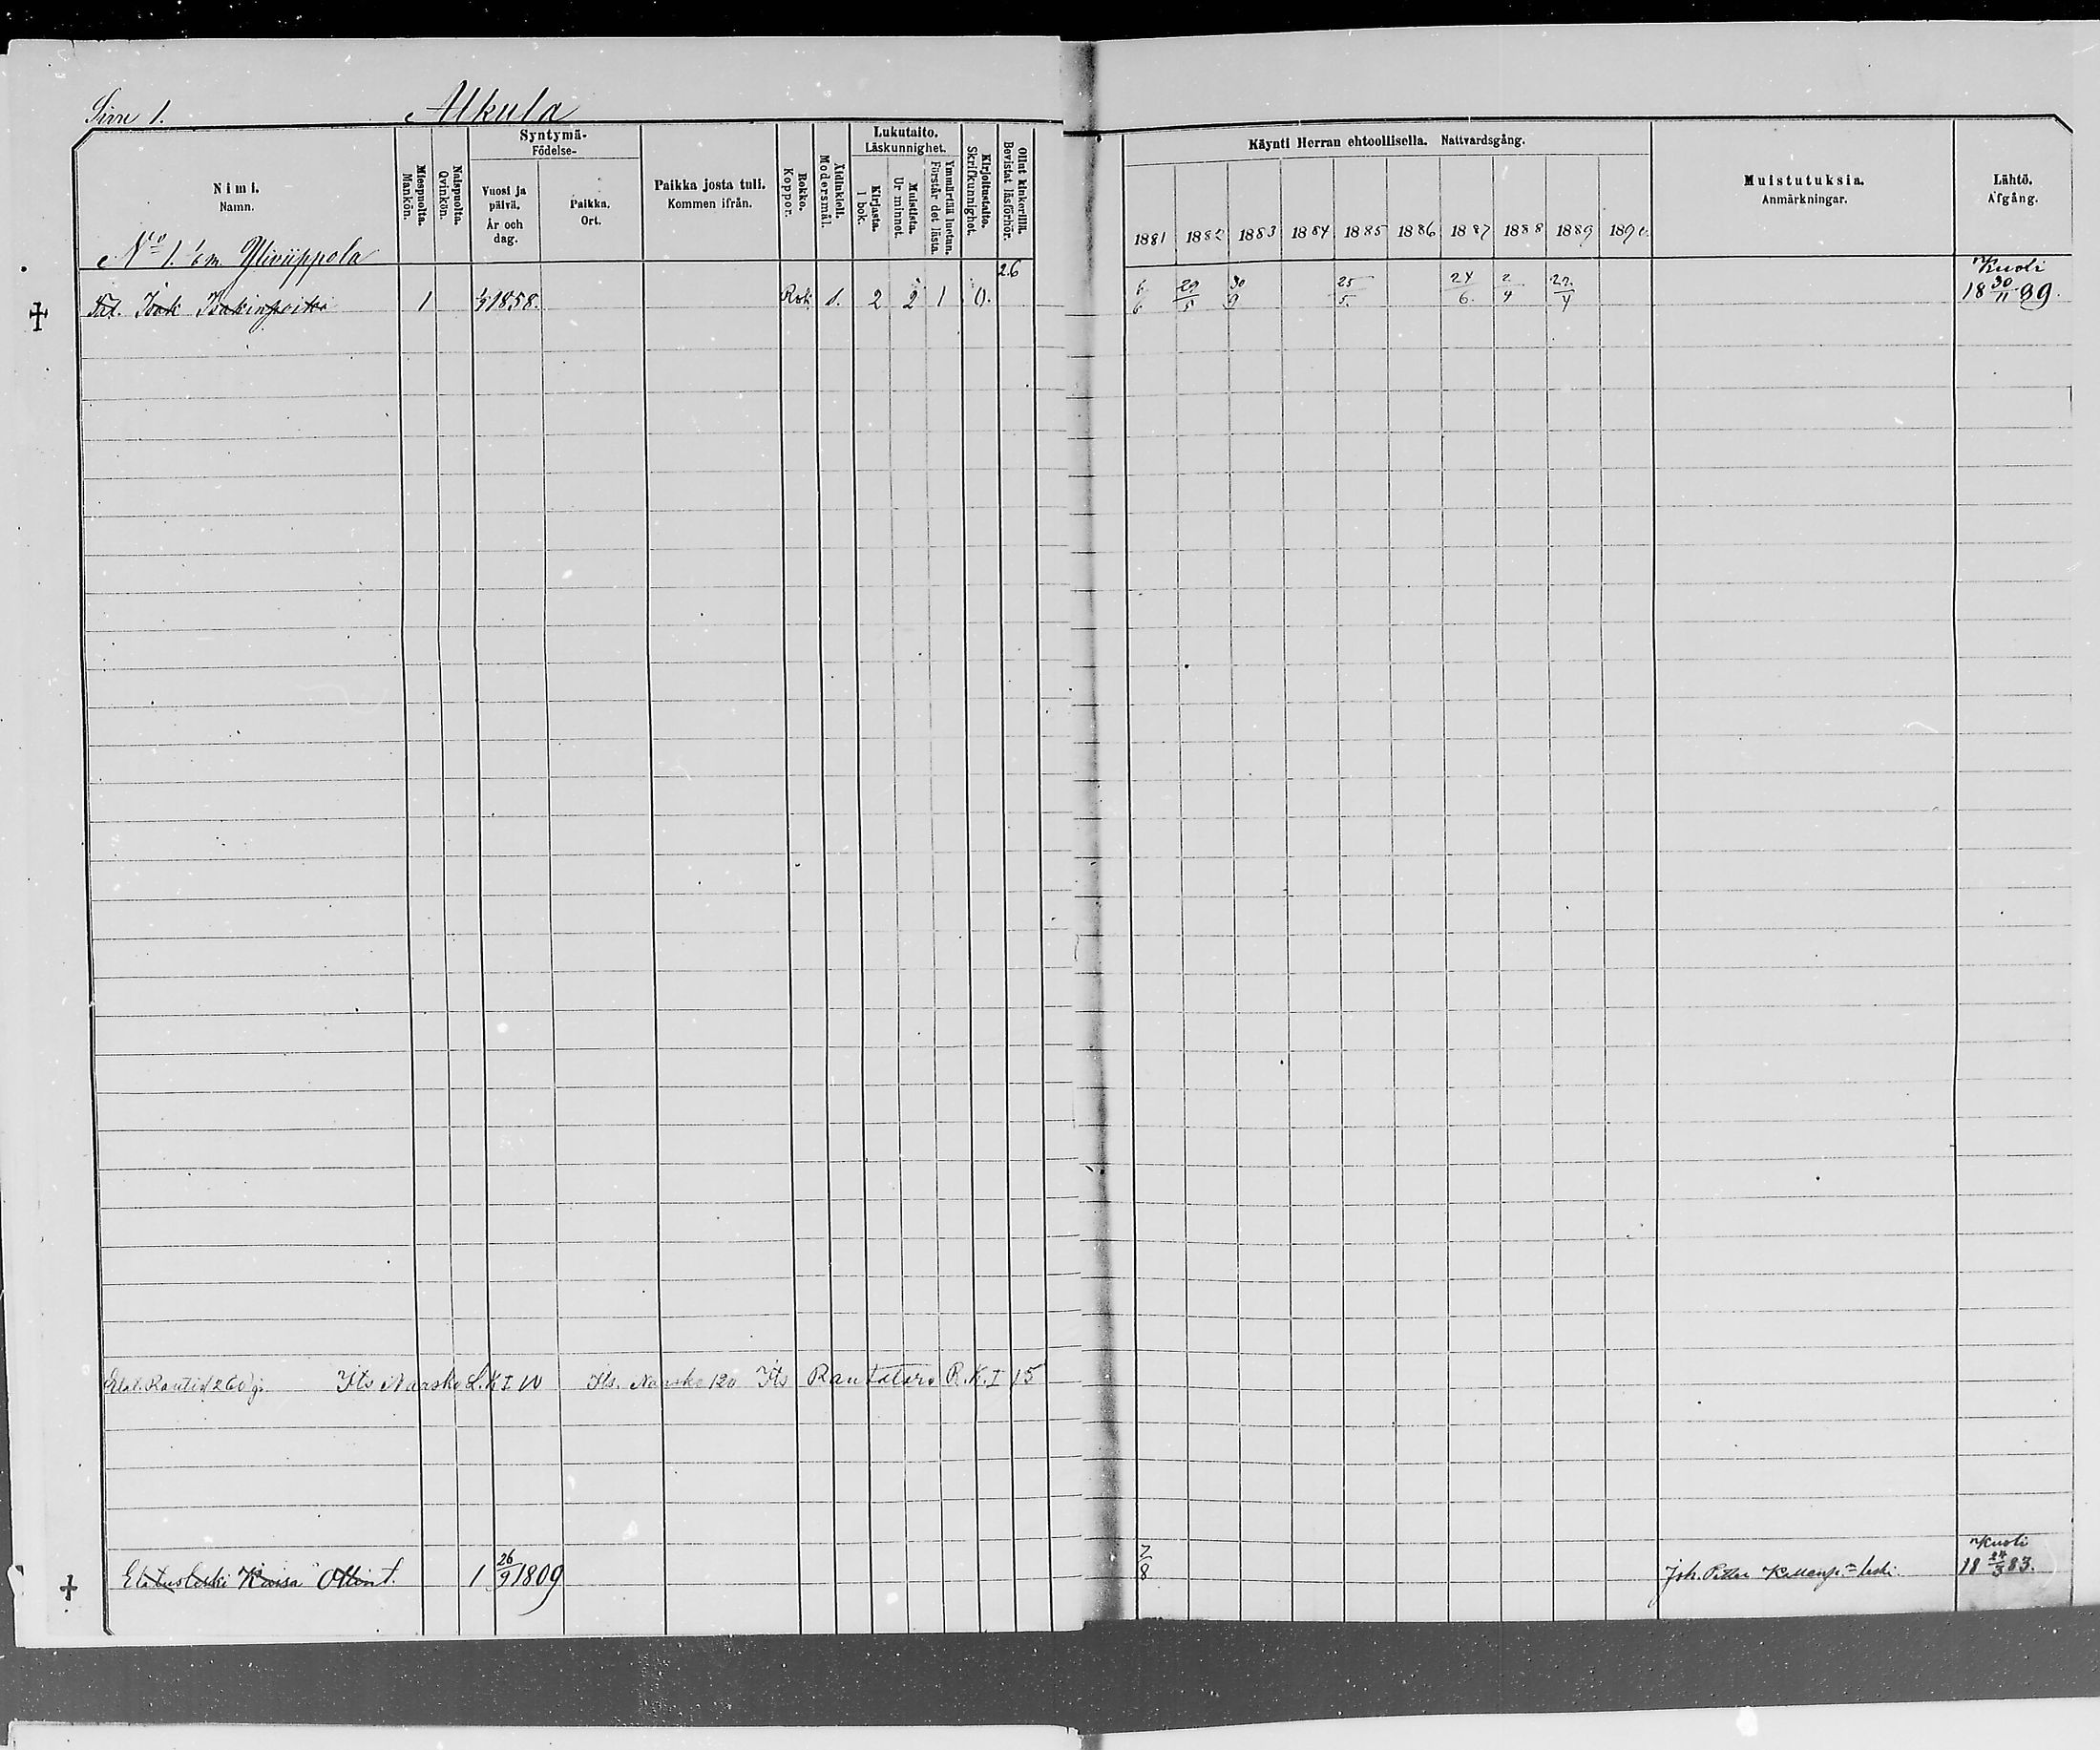 Sivu 1. Alkula
Nimi.
Namn.
Miespuolta.
Mankön.
Naispuolta.
Qvinkön.
Syntymä-
Födelse-
Vuosi ja
päivä.
År och
dag.
Paikka.
Ort.
Paikka josta tuli.
Kommen ifrån.
Rokko.
Koppor.
Äidinkieli.
Modersmål.
Lukutaito.
Läskunnighet.
Kirjasta.
I bok.
Muistista.
Ur minnet.
Ymmärtää luetun.
Förstår det lästa.
Kirjoitustaito.
Skrifkunnighet.
Ollut kinkerillä.
Bevistat läsförhör.
Käynti Herran ehtoollisella. Nattvardsgång.
1881 1882 1883 1884 1885 1886 1887 1888 1889 1890
Muistutuksia.
Anmärkningar.
Lähtö.
Afgång.
No 1. Yliviippola
26
Kuoli
Isak Isakinpoika 1 1858. Rok. 1. 2 2 1 0. 6/6 29/5 30/9 25/5. 24/6. 2/4 22/4 18 30/11 89.
Its Naarsko L.K I 10 Its. Naarsko 120 Its Rautataro R.K.I 15
Kuoli
Kaisa Ottint. 1 26/9 1809 7/8 Joh. leski 18 24/3 83.